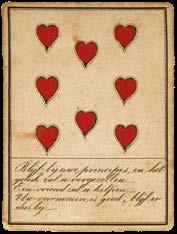 Blijf by uwe principes, en het
geluk zal u vergezellen.
Een vriend zal u helpen.
Uw voornemen is goed, blijf er
dus by.